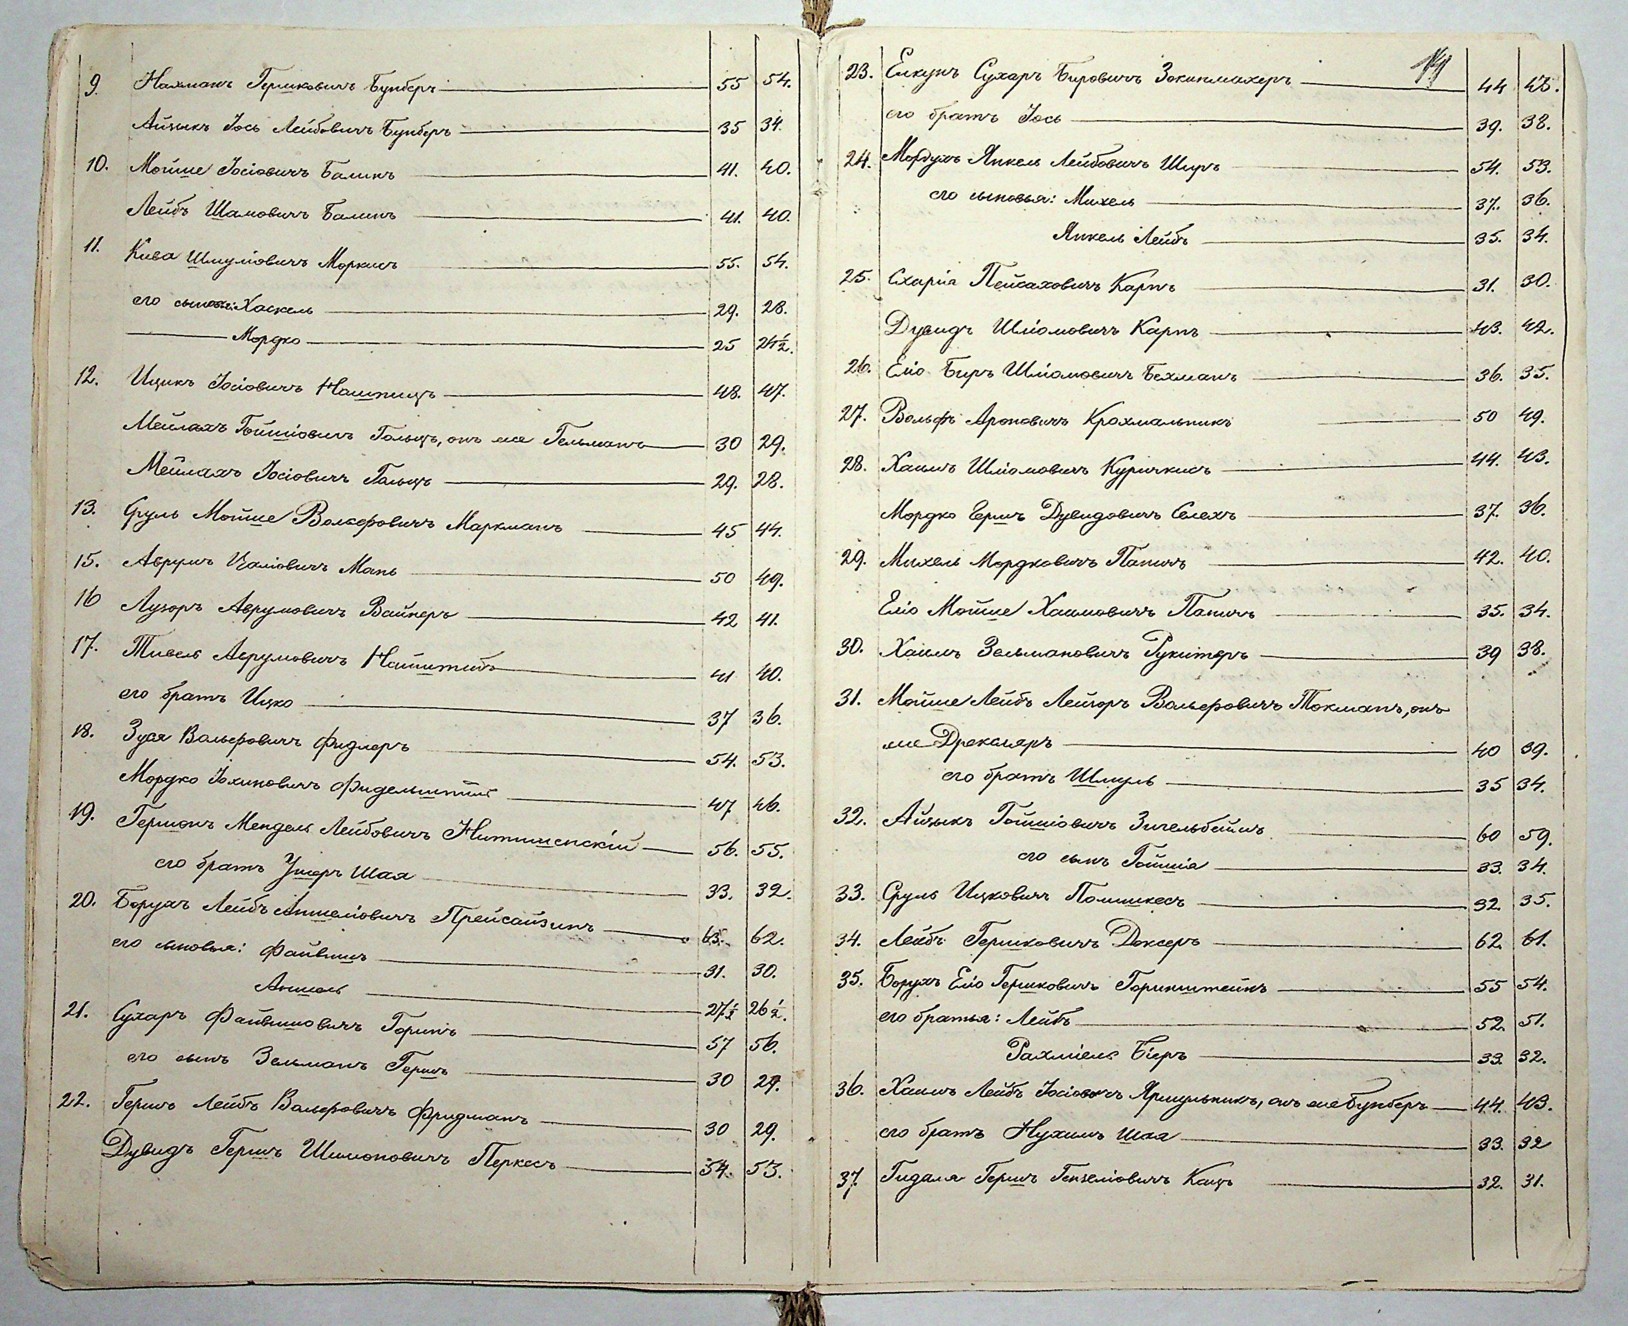 9. Нахманъ Гершковичъ Бунберъ 55 54.
Айзыкъ Іось Лейбовичъ Бунберъ 35 34.
10. Мойше Іосіовичъ Балинъ 41. 40.
Лейбъ Шамовичъ Балинъ 41. 40.
11. Кива Шмуліовичъ Моркисъ 55. 54.
его сыновья: Хаскель 29. 28.
Мордко 25 24½.
12. Ицикъ Іосіовичъ 48. 47.
Мейлахъ Гойшіовичъ Гольцъ, онъ же Гельманъ 30 29.
Мейлахъ Іосіовичъ Гольцъ 29. 28.
13. Сруль Мойше Вольфовичъ Маркманъ 45 44.
15. Аврумъ Цаліовичъ Мань 50 49.
16 Лузоръ Аврумовичъ Вайнеръ 42 41.
17. Тивель Аврумовичъ 41 40.
его братъ Ицко 37 36.
18. Зуся Вольфовичъ Фидлеръ 54. 53.
Мордко Іохиновичъ Фидельштейнъ 47 46.
19. Гершонъ Мендель Лейбовичъ 56. 55.
его братъ Ушеръ Шая 33. 32.
20. Борухъ Лейбъ Аншеліовичъ Прейсайзинъ 63. 62.
его сыновья: Файвишъ 31. 30.
Аншель 27½ 26½.
21. Сухаръ Файвишовичъ Горинъ 57 56.
его сынъ Зельманъ Гершъ 30 29.
22. Гершъ Лейбъ Вольфовичъ Фридманъ 30 29.
Дувидъ Гершъ Шимоновичъ Перкесъ 54. 53.
23. Елкунъ Сухаръ Бировичъ Зокинмахеръ 44 43.
его братъ Іось 39. 38.
24. Мордухъ Янкель Лейбовичъ 54. 53.
его сыновья: Михель 37. 36.
Янкель Лейбъ 35. 34.
25. Схарія Пейсаховичъ Карпъ 31. 30.
Дувидъ Шліомовичъ Карпъ 43. 42.
26. Еліо Биръ Шліомовичъ Бехманъ 36. 35.
27. Вольфъ Ароновичъ Крохмальникъ 50 49.
28. Хаимъ Шліомовичъ Куричкисъ 44. 43.
Мордко Гершъ Дувидовичъ Селехъ 37. 36.
29. Михель Мордковичъ Папичъ 42. 40.
Еліо Мойше Хаимовичъ Папичъ 35. 34.
30. Хаимъ Зельмановичъ 39 38.
31. Мойше Лейбъ Лейзоръ Вольфовичъ Токманъ, онъ
же Дрекслеръ 40 39.
его братъ Шмуль 35 34.
32. Айзыкъ Гойшіовичъ Зигельбеймъ 60 59.
его сынъ Гойшія 33. 34.
33. Сруль Ицковичъ Полишкесъ 32. 35.
34. Лейбъ Гершковичъ Доксеръ 62. 61.
35. Борухъ Еліо Гершковичъ Горинштейнъ 55 54.
его братья: Лейбъ 52. 51.
Рахміель Біеръ 33. 32.
36. Хаимъ Лейбъ Іосіовичъ Ярмульникъ, онъ же Бунберъ 44. 43.
его братъ Нухимъ Шая 33. 32
37. Гидаля Гершъ Гензеліовичъ Кацъ 32. 31.